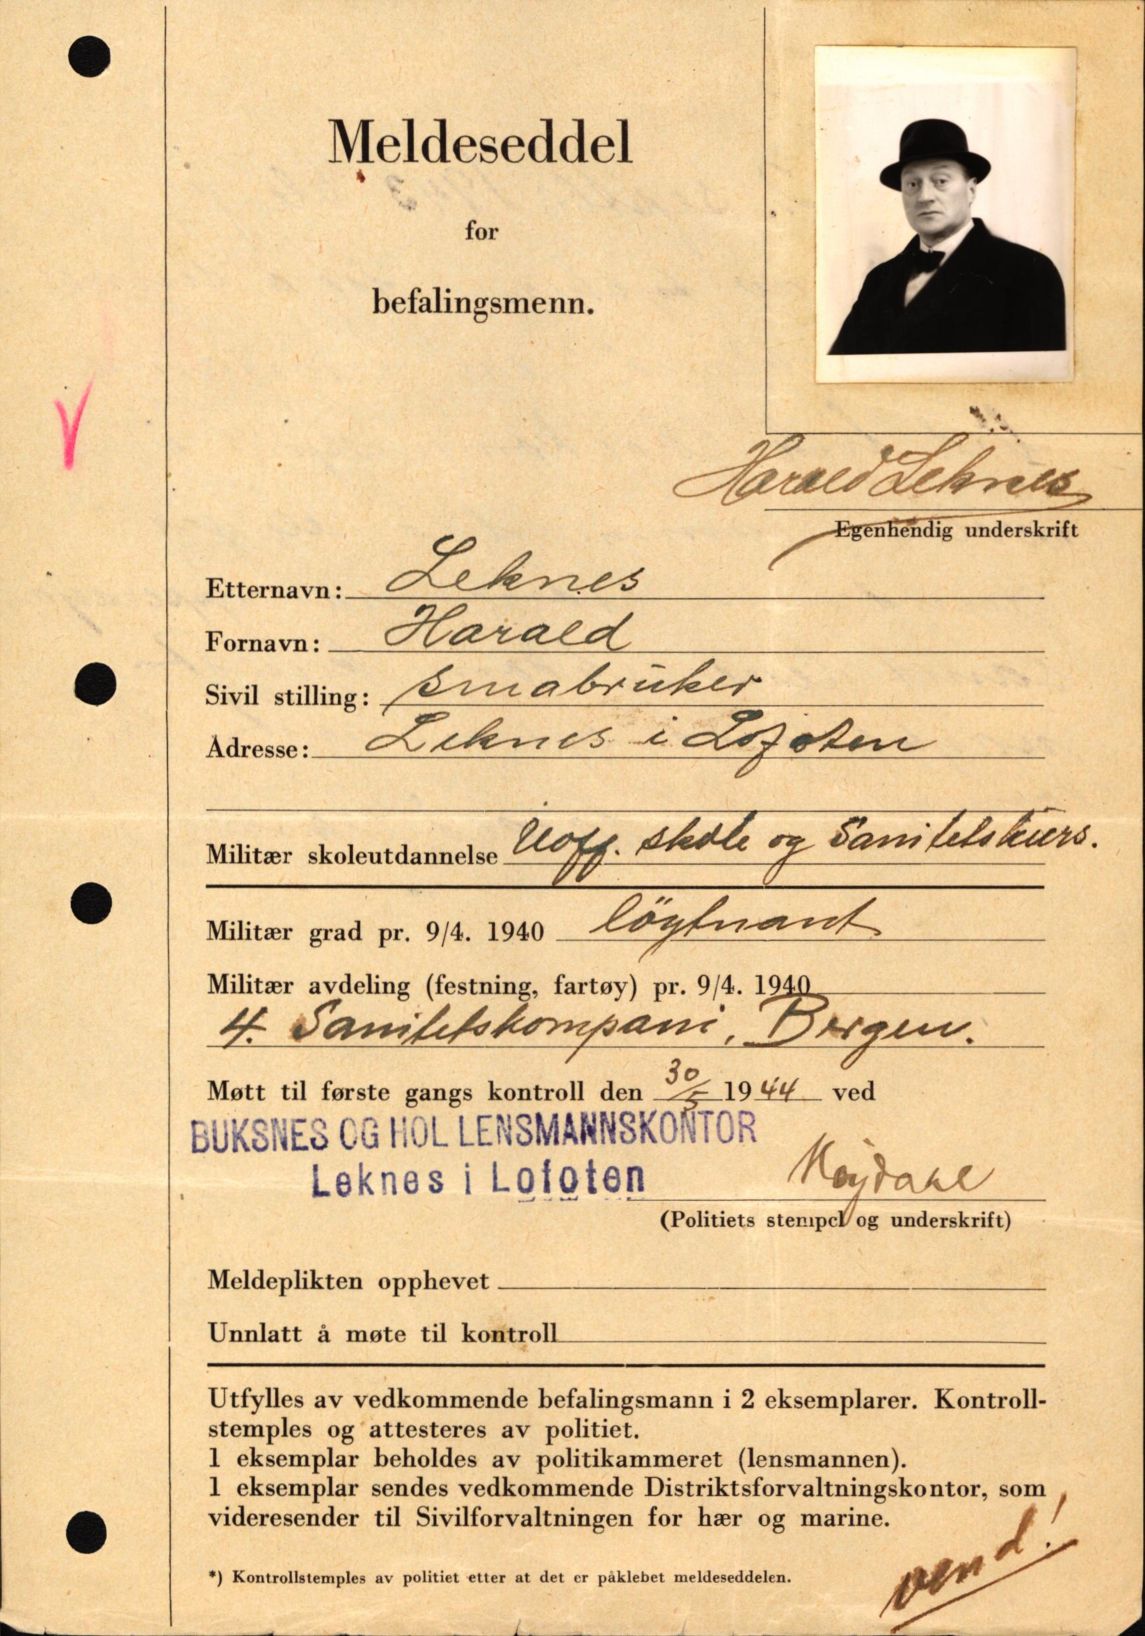 Meldeseddel
for
befalingsmenn.
Harald Leknes
Egenhendig underskrift
Etternavn: Leknes
Fornavn: Harald
Sivil stilling: småbruker
Adresse: Leknes i Lofoten
Militær skoleutdannelse Uoff. skole og Sanitetskurs.
Militær grad pr. 9/4. 1940 löytnant
Militær avdeling (festning, fartøy) pr. 9/4. 1940
4. Sanitetskompani, Bergen.
Møtt til første gangs kontroll den 30/5 1944 ved
BUKSNES OG HOL LENSMANNSKONTOR
Leknes i Lofoten
(Politiets stempel og underskrift)
Meldeplikten opphevet
Unnlatt å møte til kontroll
Utfylles av vedkommende befalingsmann i 2 eksemplarer. Kontroll-
stemples og attesteres av politiet.
1 eksemplar beholdes av politikammeret (lensmannen).
1 eksemplar sendes vedkommende Distriktsforvaltningskontor, som
videresender til Sivilforvaltningen for hær og marine.
*) Kontrollstemples av politiet etter at det er påklebet meldeseddelen.
vend!